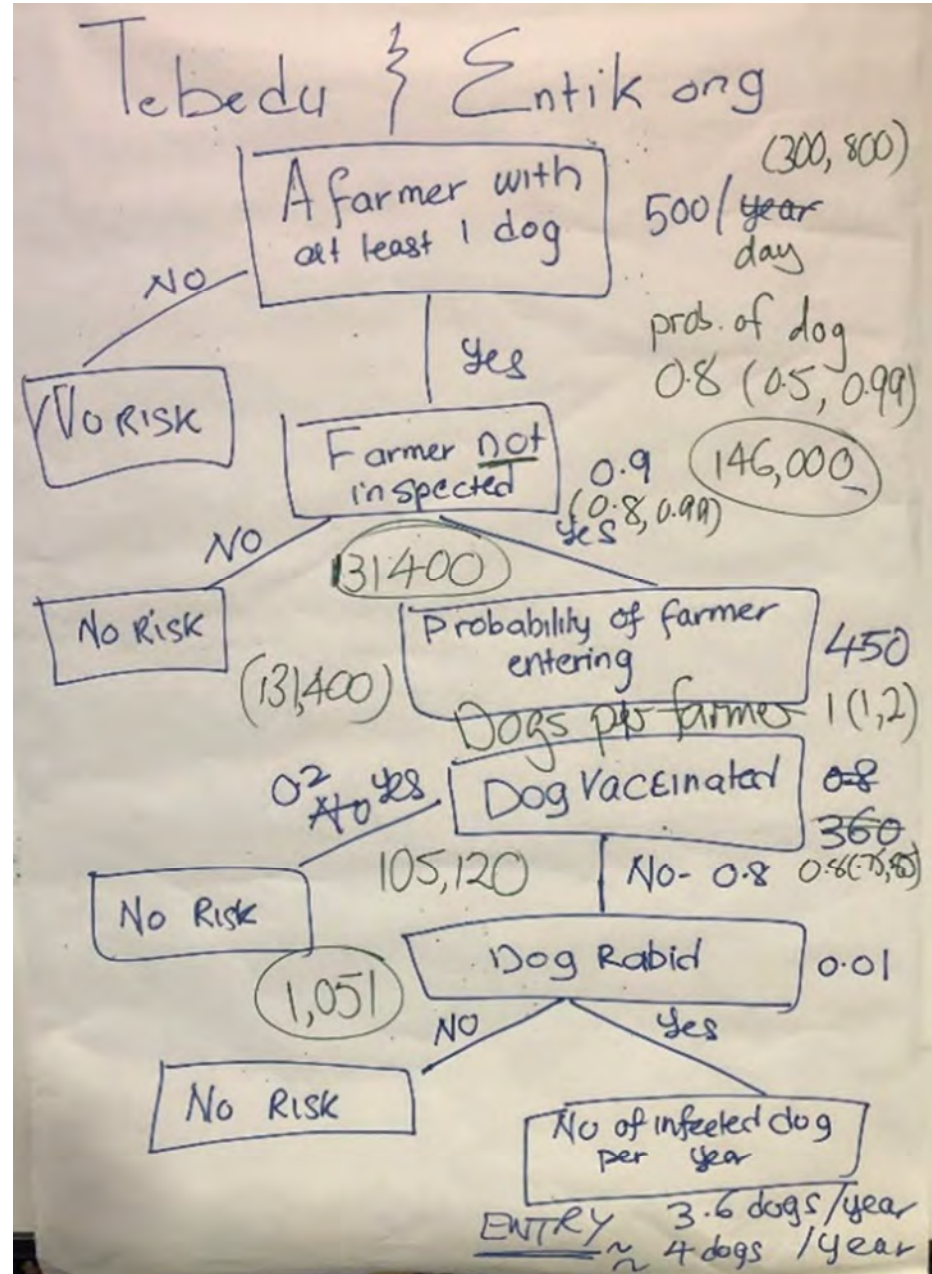 Tebedu & Entikong
(300, 800)
A farmer with
at least 1 dog
500/ year
day
NO
Yes
prob. of dog
0.8 (0.5, 0.99)
No RISK
Farmer not
inspected
0.9
(0.8, 0.99)
146,000
NO
Yes
131400
No RISK
Probability of farmer
entering
450
(131,400)
Dogs per farmer 1 (1,2)
0.2
No Yes
Dog Vaccinated
0.8
360
105,120
No - 0.8
No Risk
Dog Rabid
0.01
1,051
NO
Yes
No RISK
No of infected dog
per year
ENTRY
3.6 dogs/year
~ 4 dogs /year